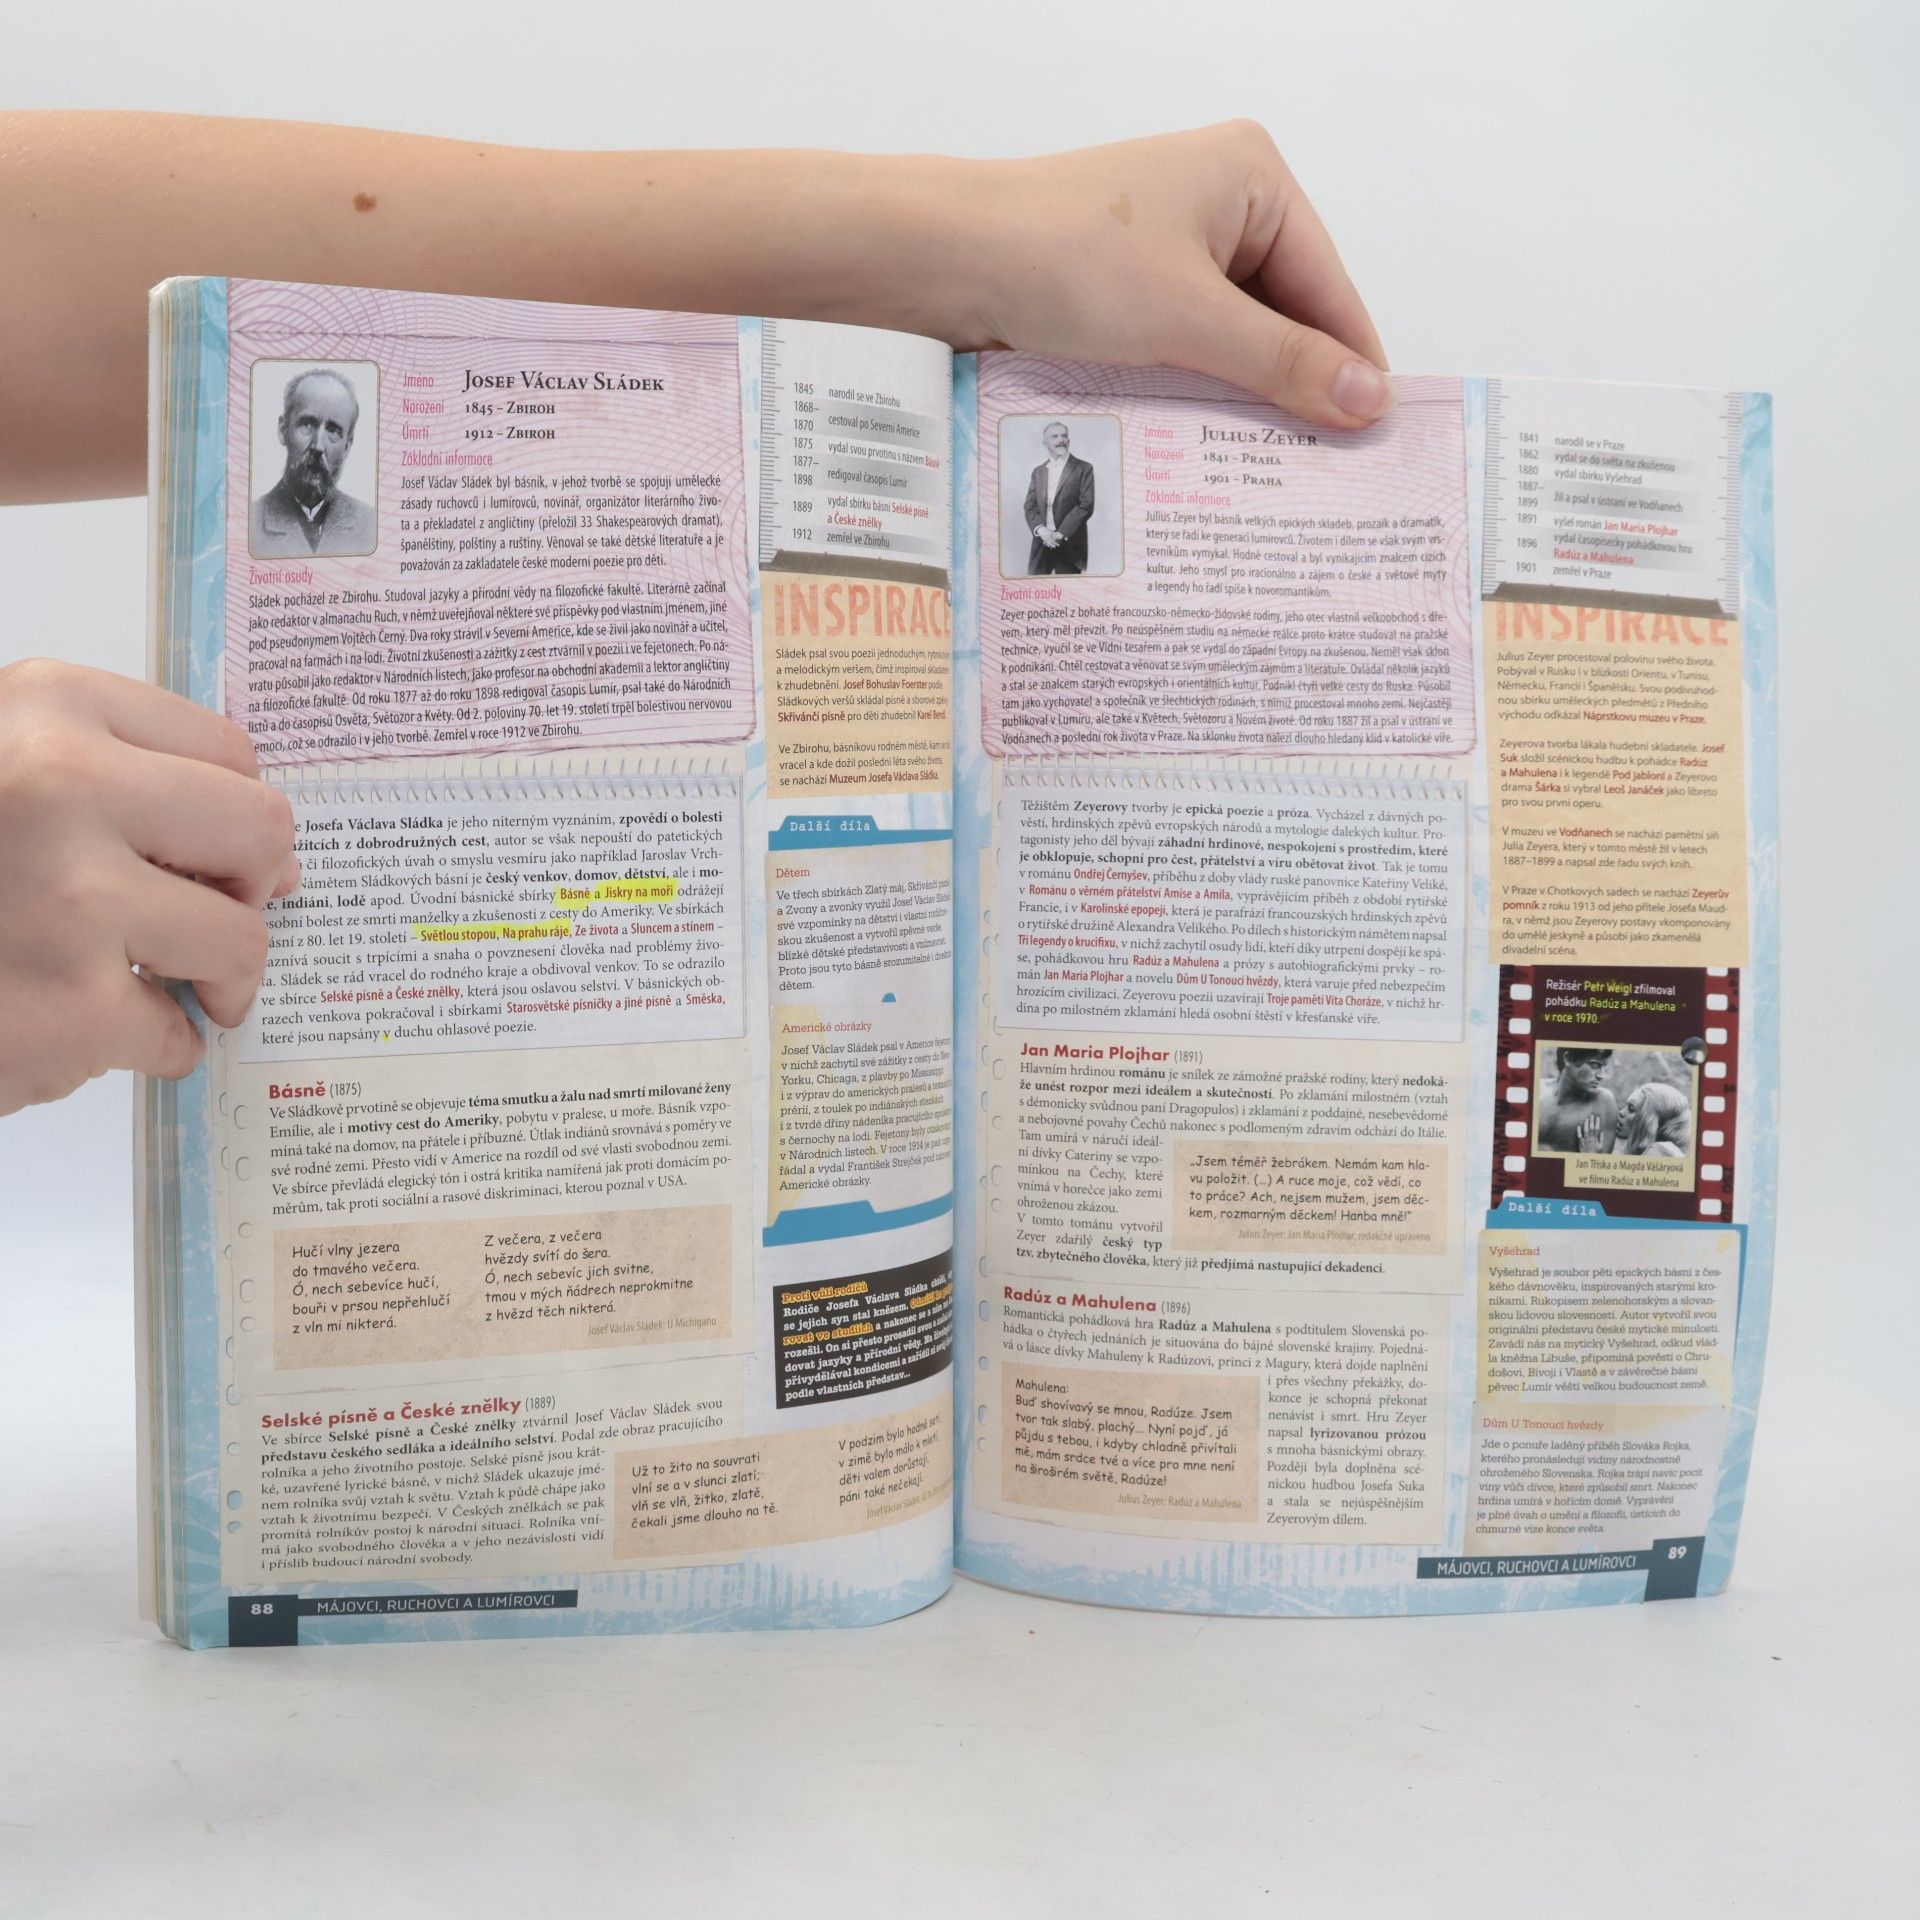 Jméno JOSEF VÁCLAV SLÁDEK
Narození 1845 – ZBIROH
Úmrtí 1912 – ZBIROH
Základní informace
Josef Václav Sládek byl básník, v jehož tvorbě se spojují umělecké
zásady ruchovců i lumírovců, novinář, organizátor literárního živo-
ta a překladatel z angličtiny (přeložil 33 Shakespearových dramat),
španělštiny, polštiny a ruštiny. Věnoval se také dětské literatuře a je
považován za zakladatele české moderní poezie pro děti.
Životní osudy
Sládek pocházel ze Zbirohu. Studoval jazyky a přírodní vědy na filozofické fakultě. Literárně začínal
jako redaktor v almanachu Ruch, v němž uveřejňoval některé své příspěvky pod vlastním jménem, jiné
pod pseudonymem Vojtěch Černý. Dva roky strávil v Severní Americe, kde se živil jako novinář a učitel,
pracoval na farmách i na lodi. Životní zkušenosti a zážitky z cest ztvárnil v poezii i ve fejetonech. Po ná-
vratu působil jako redaktor v Národních listech, jako profesor na obchodní akademii a lektor angličtiny
na filozofické fakultě. Od roku 1877 až do roku 1898 redigoval časopis Lumír, psal také do Národních
listů a do časopisů Osvěta, Světozor a Květy. Od 2. poloviny 70. let 19. století trpěl bolestivou nervovou
emocí, což se odrazilo i v jeho tvorbě. Zemřel v roce 1912 ve Zbirohu.
e Josefa Václava Sládka je jeho niterným vyznáním, zpovědí o bolesti
ážitcích z dobrodružných cest, autor se však nepouští do patetických
či filozofických úvah o smyslu vesmíru jako například Jaroslav Vrch-
Námětem Sládkových básní je český venkov, domov, dětství, ale i mo-
e, indiáni, lodě apod. Úvodní básnické sbírky Básně a Jiskry na moři odrážejí
osobní bolest ze smrti manželky a zkušenosti z cesty do Ameriky. Ve sbírkách
ásní z 80. let 19. století – Světlou stopou, Na prahu ráje, Ze života a Sluncem a stínem –
aznívá soucit s trpícími a snaha o povznesení člověka nad problémy živo-
ta. Sládek se rád vracel do rodného kraje a obdivoval venkov. To se odrazilo
ve sbírce Selské písně a České znělky, která jsou oslavou selství. V básnických ob-
razech venkova pokračoval i sbírkami Starosvětské písničky a jiné písně a Směska,
které jsou napsány v duchu ohlasové poezie.
Básně (1875)
Ve Sládkově prvotině se objevuje téma smutku a žalu nad smrtí milované ženy
Emílie, ale i motivy cest do Ameriky, pobytu v pralese, u moře. Básník vzpo-
míná také na domov, na přátele i příbuzné. Útlak indiánů srovnává s poměry ve
své rodné zemi. Přesto vidí v Americe na rozdíl od své vlasti svobodnou zemi.
Ve sbírce převládá elegický tón i ostrá kritika namířená jak proti domácím po-
měrům, tak proti sociální a rasové diskriminaci, kterou poznal v USA.
Hučí vlny jezera
do tmavého večera.
Ó, nech sebevíce hučí,
bouři v prsou nepřehlučí
z vln mi nikterá.
Z večera, z večera
hvězdy svítí do šera.
Ó, nech sebevíc jich svitne,
tmou v mých ňádrech neprokmitne
z hvězd těch nikterá.
Josef Václav Sládek: U Michiganu
Selské písně a České znělky (1889)
Ve sbírce Selské písně a České znělky ztvárnil Josef Václav Sládek svou
představu českého sedláka a ideálního selství. Podal zde obraz pracujícího
rolníka a jeho životního postoje. Selské písně jsou krát-
ké, uzavřené lyrické básně, v nichž Sládek ukazuje jmé-
nem rolníka svůj vztah k světu. Vztah k půdě chápe jako
vztah k životnímu bezpečí. V Českých znělkách se pak
promítá rolníkův postoj k národní situaci. Rolníka vní-
má jako svobodného člověka a v jeho nezávislosti vidí
i příslib budoucí národní svobody.
Už to žito na souvrati
vlní se a v slunci zlatí;
vlň se vlň, žitko, zlatě,
čekali jsme dlouho na tě.
V podzim bylo hodně setí,
v zimě bylo málo k mletí,
děti valem dorůstají,
páni také nečekají.
Josef Václav Sládek:
88 MÁJOVCI, RUCHOVCI A LUMÍROVCI
1845 narodil se ve Zbirohu
1868–1870 cestoval po Severní Americe
1875 vydal svou prvotinu s názvem Básně
1877–1898 redigoval časopis Lumír
1889 vydal sbírku básní Selské písně
a České znělky
1912 zemřel ve Zbirohu
INSPIRACE
Sládek psal svou poezii jednoduchým, rytmickým
a melodickým veršem, čímž inspiroval skladatele
k zhudebnění. Josef Bohuslav Foerster podle
Sládkových veršů skládal písně a sborové zpěvy,
Skřivánčí písně pro děti zhudebnil Karel Bendl.
Ve Zbirohu, básníkovu rodném městě, kam se
vracel a kde dožil poslední léta svého života,
se nachází Muzeum Josefa Václava Sládka.
Další díla
Dětem
Ve třech sbírkách Zlatý máj, Skřivánčí písně
a Zvony a zvonky využil Josef Václav Sládek
své vzpomínky na dětství i vlastní rodičov-
skou zkušenost a vytvořil zpěvné verše,
blízké dětské představivosti a vnímavosti.
Proto jsou tyto básně srozumitelné i dnešním
dětem.
Americké obrázky
Josef Václav Sládek psal v Americe fejetony,
v nichž zachytil své zážitky z cesty do New
Yorku, Chicaga, z plavby po Mississippi
i z výprav do amerických pralesů a
prérií, z toulek po indiánských stezkách
i z tvrdé dřiny nádeníka pracujícího společně
s černochy na lodi. Fejetony byly otiskovány
v Národních listech. V roce 1914 je pak
řádal a vydal František Strejček pod názvem
Americké obrázky.
Proti vůli rodičů
Rodiče Josefa Václava Sládka chtěli,
se jejich syn stal knězem. Odmítli ho
rovat ve studiích a nakonec se s ním
rozešli. On si přesto prosadil svou a
dovat jazyky a přírodní vědy. Na živobytí
přivydělával kondicemi a zařídil si svůj
podle vlastních představ...
Jméno JULIUS ZEYER
Narození 1841 – PRAHA
Úmrtí 1901 – PRAHA
Základní informace
Julius Zeyer byl básník velkých epických skladeb, prozaik a dramatik,
který se řadí ke generaci lumírovců. Životem i dílem se však svým vrs-
tevníkům vymykal. Hodně cestoval a byl vynikajícím znalcem cizích
kultur. Jeho smysl pro iracionálno a zájem o české a světové mýty
a legendy ho řadí spíše k novoromantikům.
Životní osudy
Zeyer pocházel z bohaté francouzsko-německo-židovské rodiny, jeho otec vlastnil velkoobchod s dře-
vem, který měl převzít. Po neúspěšném studiu na německé reálce proto krátce studoval na pražské
technice, vyučil se ve Vídni tesařem a pak se vydal do západní Evropy na zkušenou. Neměl však sklon
k podnikání. Chtěl cestovat a věnovat se svým uměleckým zájmům a literatuře. Ovládal několik jazyků
a stal se znalcem starých evropských i orientálních kultur. Podnikl čtyři velké cesty do Ruska. Působil
tam jako vychovatel a společník ve šlechtických rodinách, s nimiž procestoval mnoho zemí. Nejčastěji
publikoval v Lumíru, ale také v Květech, Světozoru a Novém životě. Od roku 1887 žil a psal v ústraní ve
Vodňanech a poslední rok života v Praze. Na sklonku života nalezl dlouho hledaný klid v katolické víře.
Těžištěm Zeyerovy tvorby je epická poezie a próza. Vycházel z dávných po-
věstí, hrdinských zpěvů evropských národů a mytologie dalekých kultur. Pro-
tagonisty jeho děl bývají záhadní hrdinové, nespokojení s prostředím, které
je obklopuje, schopní pro čest, přátelství a víru obětovat život. Tak je tomu
v románu Ondřej Černyšev, příběhu z doby vlády ruské panovnice Kateřiny Veliké,
v Románu o věrném přátelství Amise a Amila, vyprávějícím příběh z období rytířské
Francie, i v Karolinské epopeji, která je parafrází francouzských hrdinských zpěvů
o rytířské družině Alexandra Velikého. Po dílech s historickým námětem napsal
Tři legendy o krucifixu, v nichž zachytil osudy lidí, kteří díky utrpení dospějí ke spá-
se, pohádkovou hru Radúz a Mahulena a prózy s autobiografickými prvky – ro-
mán Jan Maria Plojhar a novelu Dům U Tonoucí hvězdy, která varuje před nebezpečím
hrozícím civilizaci. Zeyerovu poezii uzavírají Troje paměti Víta Choráze, v nichž hr-
dina po milostném zklamání hledá osobní štěstí v křesťanské víře.
Jan Maria Plojhar (1891)
Hlavním hrdinou románu je snílek ze zámožné pražské rodiny, který nedoká-
že unést rozpor mezi ideálem a skutečností. Po zklamání milostném (vztah
s démonicky svůdnou paní Dragopulos) i zklamání z poddajné, nesebevědomé
a nebojovné povahy Čechů nakonec s podlomeným zdravím odchází do Itálie.
Tam umírá v náručí ideál-
ní dívky Cateriny se vzpo-
mínkou na Čechy, které
vnímá v horečce jako zemi
ohroženou zkázou.
V tomto tománu vytvořil
Zeyer zdařilý český typ
tzv. zbytečného člověka, který již předjímá nastupující dekadenci.
„Jsem téměř žebrákem. Nemám kam hla-
vu položit. (...) A ruce moje, což vědí, co
to práce? Ach, nejsem mužem, jsem děc-
kem, rozmarným děckem! Hanba mně!"
Julius Zeyer: Jan Maria Plojhar, redakčně upraveno
Radúz a Mahulena (1896)
Romantická pohádková hra Radúz a Mahulena s podtitulem Slovenská po-
hádka o čtyřech jednáních je situována do bájné slovenské krajiny. Pojedná-
vá o lásce dívky Mahuleny k Radúzovi, princi z Magury, která dojde naplnění
i přes všechny překážky, do-
konce je schopná překonat
nenávist i smrt. Hru Zeyer
napsal lyrizovanou prózou
s mnoha básnickými obrazy.
Později byla doplněna scé-
nickou hudbou Josefa Suka
a stala se nejúspěšnějším
Zeyerovým dílem.
Mahulena:
Buď shovívavý se mnou, Radúze. Jsem
tvor tak slabý, plachý... Nyní pojď, já
půjdu s tebou, i kdyby chladně přivítali
mě, mám srdce tvé a více pro mne není
na široširém světě, Radúze!
Julius Zeyer: Radúz a Mahulena
1841 narodil se v Praze
1862 vydal se do světa na zkušenou
1880 vydal sbírku Vyšehrad
1887–1899 žil a psal v ústraní ve Vodňanech
1891 vyšel román Jan Maria Plojhar
1896 vydal časopisecky pohádkovou hru
Radúz a Mahulena
1901 zemřel v Praze
INSPIRACE
Julius Zeyer procestoval polovinu svého života.
Pobýval v Rusku i v blízkosti Orientu, v Tunisu,
Německu, Francii i Španělsku. Svou podivuhod-
nou sbírku uměleckých předmětů z Předního
východu odkázal Náprstkovu muzeu v Praze.
Zeyerova tvorba lákala hudební skladatele. Josef
Suk složil scénickou hudbu k pohádce Radúz
a Mahulena i k legendě Pod jabloní a Zeyerovo
drama Šárka si vybral Leoš Janáček jako libreto
pro svou první operu.
V muzeu ve Vodňanech se nachází pamětní síň
Julia Zeyera, který v tomto městě žil v letech
1887–1899 a napsal zde řadu svých knih.
V Praze v Chotkových sadech se nachází Zeyerův
pomník z roku 1913 od jeho přítele Josefa Maud-
ra, v němž jsou Zeyerovy postavy vkomponovány
do umělé jeskyně a působí jako zkamenělá
divadelní scéna.
Režisér Petr Weigl zfilmoval
pohádku Radúz a Mahulena
v roce 1970.
Jan Tříska a Magda Vášáryová
ve filmu Radúz a Mahulena
Další díla
Vyšehrad
Vyšehrad je soubor pěti epických básní z čes-
kého dávnověku, inspirovaných starými kro-
nikami, Rukopisem zelenohorským a slovan-
skou lidovou slovesností. Autor vytvořil svou
originální představu české mytické minulosti.
Zavádí nás na mytický Vyšehrad, odkud vlád-
la kněžna Libuše, připomíná pověsti o Chru-
došovi, Bivoji i Vlastě a v závěrečné básni
pěvec Lumír věští velkou budoucnost země.
Dům U Tonoucí hvězdy
Jde o ponuře laděný příběh Slováka Rojka,
kterého pronásledují vidiny národnostně
ohroženého Slovenska. Rojka trápí navíc pocit
viny vůči dívce, které způsobil smrt. Nakonec
hrdina umírá v hořícím domě. Vyprávění
je plné úvah o umění a filozofii, ústících do
chmurné vize konce světa.
MÁJOVCI, RUCHOVCI A LUMÍROVCI 89